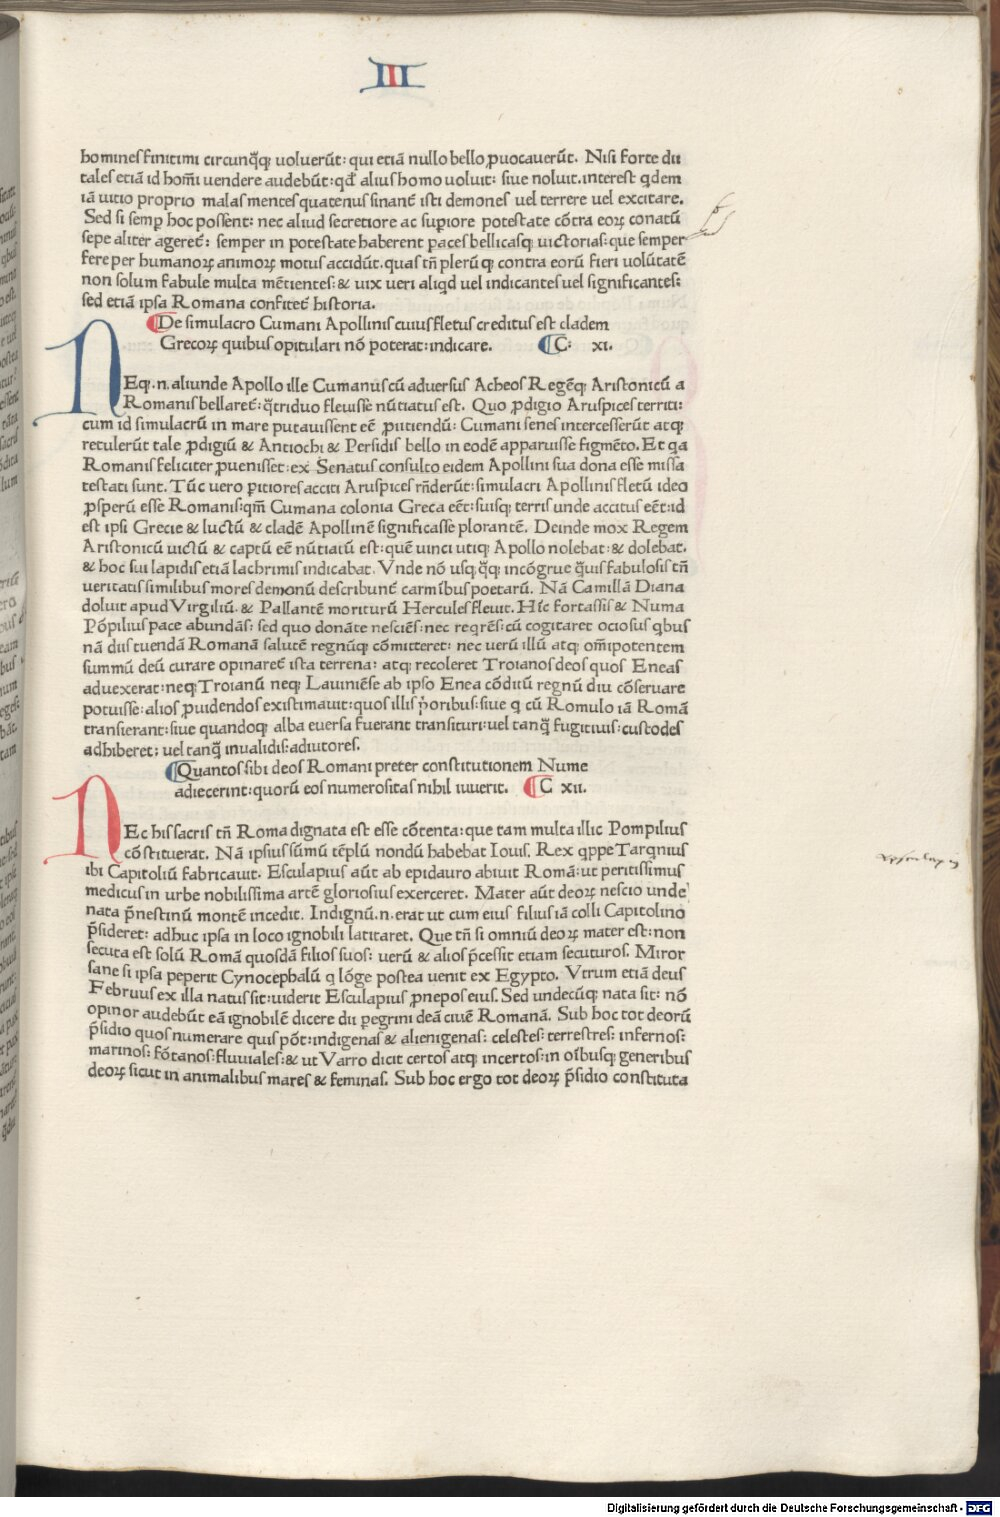 III
homines finitimi circunq̃q; uoluerũt: qui etiã nullo bello ꝓuocauerũt. Nisi forte dii
tales etiã id homĩ uendere audebũt: qđ alius homo uoluit: siue noluit. interest qdem
iã uitio proprio malas mentes quatenus sinant̃ isti demones uel terrere uel excitare.
Sed si semꝑ hoc possent: nec aliud secretiore ac suꝑiore potestate cõtra eoꝝ conatũ
sepe aliter ageret̃: semper in potestate haberent paces bellicasq; uictorias: que semper
fere per humanoꝝ animoꝝ motus accidũt. quas tñ plerũq; contra eorũ fieri uolũtatẽ
non solum fabule multa mẽtientes: & uix ueri aliqd uel indicantes uel significantes:
sed etiã ipsa Romana confitet̃ historia.
De simulacro Cumani Apollinis cuius fletus creditus est cladem
Grecoꝝ quibus opitulari nõ poterat: indicare. C: xi.
NEq;.n. aliunde Apollo ille Cumanus cũ aduersus Acheos Regẽq; Aristonicũ a
Romanis bellaret̃: q̃triduo fleuisse nũtiatus est. Quo ꝓdigio Aruspices territi:
cum id simulacrũ in mare putauissent eẽ ꝓiitiendũ: Cumani senes intercesserũt atq;
retulerũt tale ꝓdigiũ & Antiochi & Persidis bello in eodẽ apparuisse figmẽto. Et qa
Romanis feliciter ꝓuenisset: ex Senatus consulto eidem Apollini sua dona esse missa
testati sunt. Tũc uero ꝑitiores acciti Aruspices rñderũt: simulacri Apollinis fletũ ideo
ꝓsperũ esse Romanis: qm̃ Cumana colonia Greca eẽt: suisq; terris unde accitus eẽt: id
est ipsi Grecie & luctũ & cladẽ Apollinẽ significasse plorantẽ. Deinde mox Regem
Aristonicũ uictũ & captũ eẽ nũtiatũ est: quẽ uinci utiq; Apollo nolebat: & dolebat.
& hoc sui lapidis etiã lachrimis indicabat. Vnde nõ usq;q̃q; incõgrue q̃uis fabulosis tñ
ueritati similibus mores demonũ describunt̃ carmĩbus poetarũ. Nã Camillã Diana
doluit apud Virgiliũ. & Pallantẽ moriturũ Hercules fleuit. Hĩc fortassis & Numa
Põpilius pace abundãs: sed quo donãte nesciẽs: nec reqrẽs: cũ cogitaret ociosus qbus
nã diis tuendã Romanã salutẽ regnũq; cõmitteret: nec uerũ illũ atq; om̃ipotentem
summũ deũ curare opinaret̃ ista terrena: atq; recoleret Troianos deos quos Eneas
aduexerat: neq; Troianũ neq; Lauiniẽse ab ipso Enea cõditũ regnũ diu cõseruare
potuisse: alios ꝓuidendos existimauit: quos illis p̃oribus: siue q cũ Romulo iã Romã
transierant: siue quandoq; alba euersa fuerant transituri: uel tanq̃ fugitiuis: custodes
adhiberet: uel tanq̃ inualidis: adiutores.
Quantos sibi deos Romani preter constitutionem Nume
adiecerint: quorũ eos numerositas nihil iuuerit. C xii.
NEc his sacris tñ Roma dignata est esse cõtenta: que tam multa illic Pompilius
cõstituerat. Nã ipsius sũmũ tẽplũ nondũ habebat Iouis. Rex qppe Tarqnius
ibi Capitoliũ fabricauit. Esculapius aũt ab epidauro abiuit Romã: ut peritissimus
medicus in urbe nobilissima artẽ gloriosius exerceret. Mater aũt deoꝝ nescio unde
nata p̃nestinũ montẽ incedit. Indignũ.n. erat ut cum eius filius iã colli Capitolino
p̃sideret: adhuc ipsa in loco ignobili latitaret. Que tñ si omniũ deoꝝ mater est: non
secuta est solũ Romã quosdã filios suos: uerũ & alios p̃cessit etiam secuturos. Miror
sane si ipsa peperit Cynocephalũ q lõge postea uenit ex Egypto. Vtrum etiã deus
Februus ex illa natus sit: uiderit Esculapius ꝓnepos eius. Sed undecũq; nata sit: nõ
opinor audebũt eã ignobilẽ dicere dii ꝑegrini deã ciuẽ Romanã. Sub hoc tot deorũ
p̃sidio quos numerare quis põt: indigenas & alienigenas: celestes: terrestres: infernos:
marinos: fõtanos: fluuiales: & ut Varro dicit certos atq; incertos: in oĩbusq; generibus
deoꝝ sicut in animalibus mares & feminas. Sub hoc ergo tot deoꝝ p̃sidio constituta
Digitalisierung gefördert durch die Deutsche Forschungsgemeinschaft - DFG